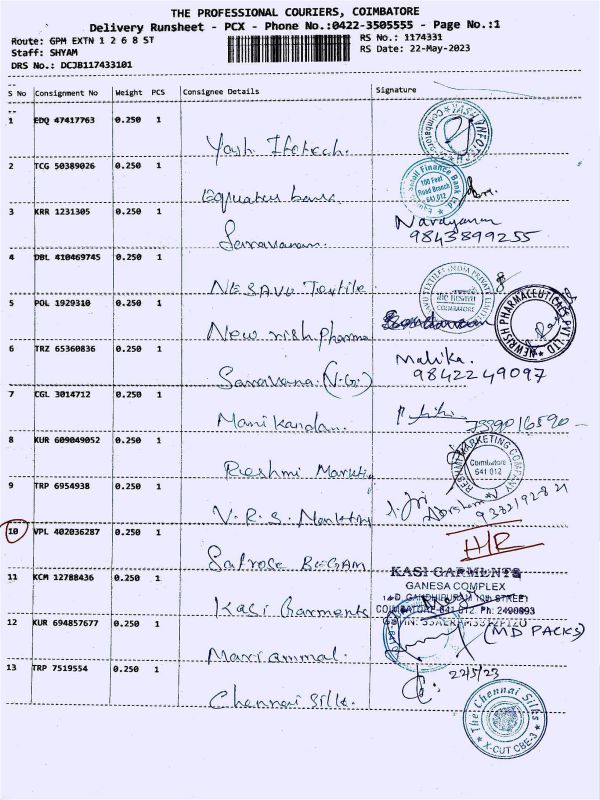 THE PROFESSIONAL COURIERS, COIMBATORE
Delivery Runsheet - PCX - Phone No.:0422-3505555 - Page No.:1
Route: GPM EXTN 1 2 6 8 ST
RS No.: 1174331
Staff: SHYAM
RS Date: 22-May-2023
DRS No.: DCJB117433101
S No Consignment No Weight PCS Consignee Details Signature
1 EDQ 47417763 0.250 1
Yash
2 TCG 50389026 0.250 1
Equatus bank
Small Finance Bank Ltd
100 Feet
Road Branch
641 012
3 KRR 1231305 0.250 1
Saravanan.
Narayanan
9843899255
4 DBL 410469745 0.250 1
NESAVU Textile
COIMBATORE
5 POL 1929310 0.250 1
New rish pharma
NEWRISH PHARMACEUTICALS PVT LTD
6 TRZ 65360836 0.250 1
Saravana. (V.G.)
Malika.
9842249097
7 CGL 3014712 0.250 1
Manikandan.
8 KUR 609049052 0.250 1
Reshmi
RESHMI MARKETING COMPANY
Coimbatore
641 012
9 TRP 6954938 0.250 1
V.R.S.
10 VPL 402036287 0.250 1
Safrose BEGAM
11 KCM 12788436 0.250 1
Kasi Garments
KASI GARMENTS
GANESA COMPLEX
COIMBATORE-641 012. Ph: 2490893
12 KUR 694857677 0.250 1
Mariammal.
(MD PACKS)
13 TRP 7519554 0.250 1
Chennai Silk.
22/5/23
The Chennai Silks
X-CUT CBE-3